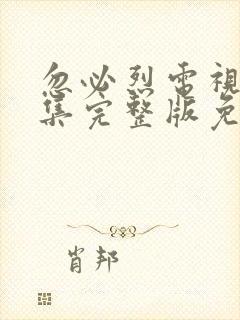 忽必烈電視
集完整版免
肖邦